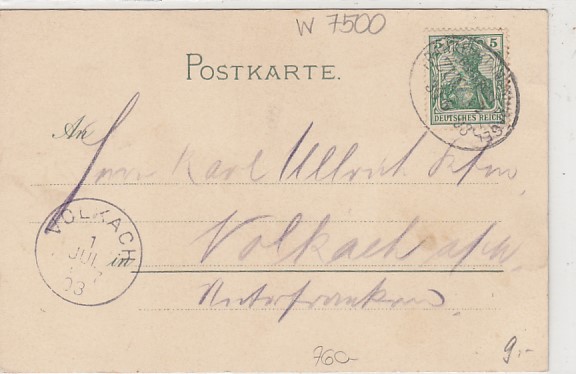 W 7500
POSTKARTE.
5
DEUTSCHES REICH
An
Herrn Karl Ullrich
VOLKACH
1
JUL
03
in Volkach a/M
Unterfranken
760-
9.-